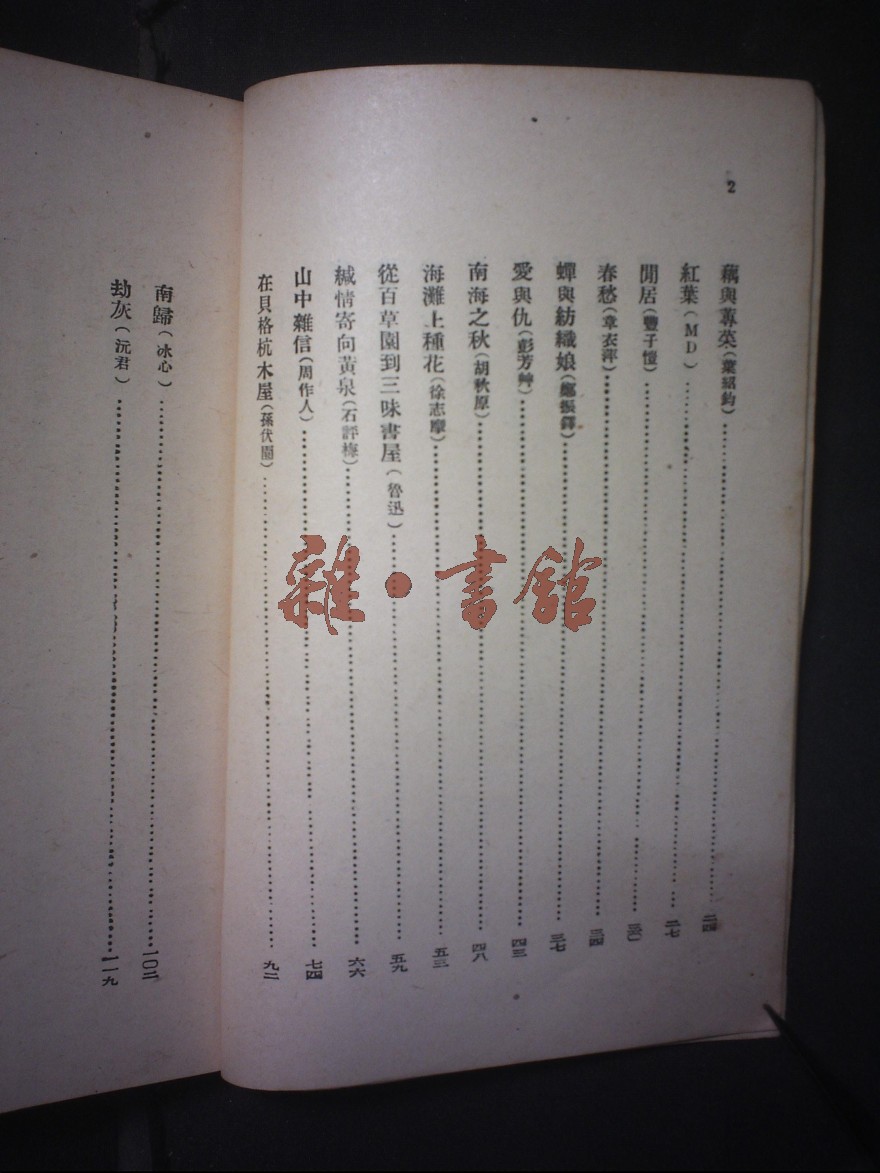 2
藕與蓴菜(葉紹鈞)……二四
紅葉(MD)……二七
閒居(豐子愷)……三〇
春愁(章衣萍)……三四
蟬與紡織娘(鄭振鐸)……三七
愛與仇(彭芳艸)……四三
南海之秋(胡秋原)……四八
海灘上種花(徐志摩)……五三
從百草園到三味書屋(魯迅)……五九
緘情寄向黃泉(石評梅)……六六
山中雜信(周作人)……七四
在貝格杭木屋(孫伏園)……九二
南歸(冰心)……一〇二
劫灰(沅君)……一一九
雜·書館